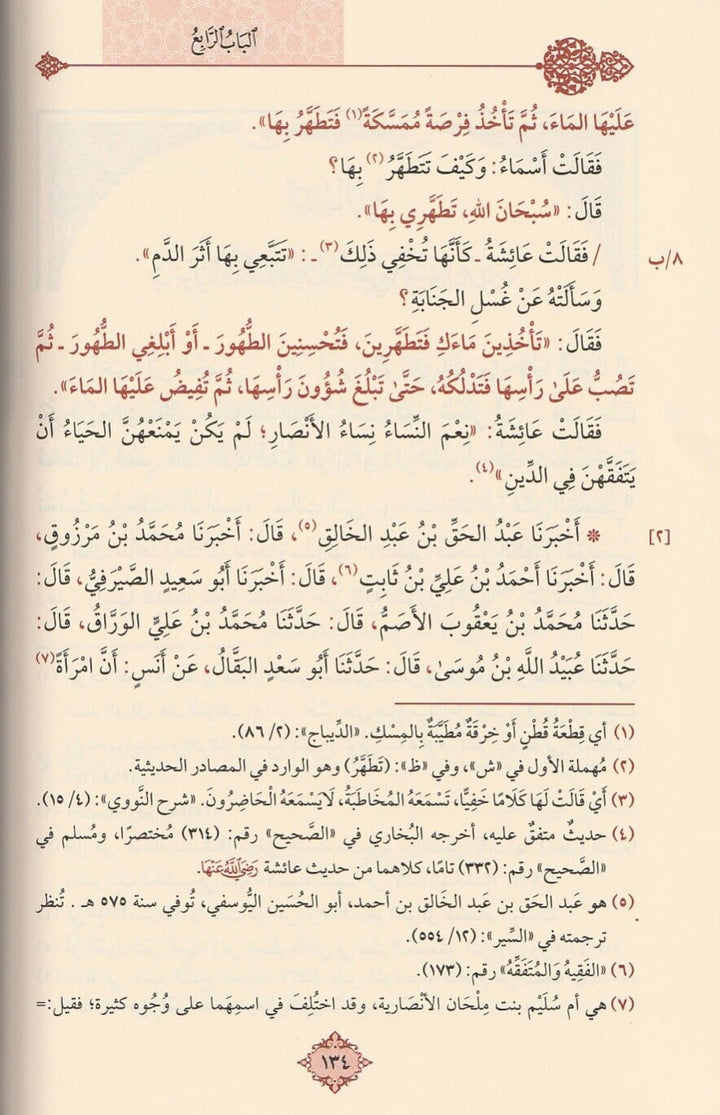 البَابُ الرَّابِعُ
عَلَيْهَا المَاءَ، ثُمَّ تَأْخُذُ فِرْصَةً مُمَسَّكَةً(١) فَتَطَهَّرُ بِهَا».
فَقَالَتْ أَسْمَاءُ: وَكَيْفَ تَتَطَهَّرُ(٢) بِهَا؟
قَالَ: «سُبْحَانَ اللهِ، تَطَهَّرِي بِهَا».
٨/ب / فَقَالَتْ عَائِشَةُ ـ كَأَنَّهَا تُخْفِي ذَلِكَ(٣) ـ : «تَتَبَّعِي بِهَا أَثَرَ الدَّمِ».
وَسَأَلَتْهُ عَنْ غُسْلِ الجَنَابَةِ؟
فَقَالَ: «تَأْخُذِينَ مَاءَكِ فَتَطَهَّرِينَ، فَتُحْسِنِينَ الطُّهُورَ ـ أَوْ أَبْلِغِي الطُّهُورَ ـ ثُمَّ
تَصُبُّ عَلَىٰ رَأْسِهَا فَتَدْلُكُهُ، حَتَّىٰ تَبْلُغَ شُؤُونَ رَأْسِهَا، ثُمَّ تُفِيضُ عَلَيْهَا المَاءَ».
فَقَالَتْ عَائِشَةُ: «نِعْمَ النِّسَاءُ نِسَاءُ الأَنْصَارِ؛ لَمْ يَكُنْ يَمْنَعْهُنَّ الحَيَاءُ أَنْ
يَتَفَقَّهْنَ فِي الدِّينِ»(٤).
[٢] * أَخْبَرَنَا عَبْدُ الحَقِّ بْنُ عَبْدِ الخَالِقِ(٥)، قَالَ: أَخْبَرَنَا مُحَمَّدُ بْنُ مَرْزُوقٍ،
قَالَ: أَخْبَرَنَا أَحْمَدُ بْنُ عَلِيِّ بْنِ ثَابِتٍ(٦)، قَالَ: أَخْبَرَنَا أَبُو سَعِيدٍ الصَّيْرَفِيُّ، قَالَ:
حَدَّثَنَا مُحَمَّدُ بْنُ يَعْقُوبَ الأَصَمُّ، قَالَ: حَدَّثَنَا مُحَمَّدُ بْنُ عَلِيٍّ الوَرَّاقُ، قَالَ:
حَدَّثَنَا عُبَيْدُ اللَّهِ بْنُ مُوسَىٰ، قَالَ: حَدَّثَنَا أَبُو سَعْدٍ البَقَّالُ، عَنْ أَنَسٍ: أَنَّ امْرَأَةً(٧)
(١) أي قِطْعَةُ قُطْنٍ أَوْ خِرْقَةٌ مُطَيَّبَةٌ بِالمِسْكِ. «الدِّيباج»: (٢/ ٨٦).
(٢) مُهملة الأول في «ش»، وفي «ظ»: (تَطَهَّرُ) وهو الوارد في المصادر الحديثية.
(٣) أَيْ قَالَتْ لَهَا كَلَامًا خَفِيًّا، تَسْمَعَهُ المُخَاطَبَةُ، لَا يَسْمَعَهُ الْحَاضِرُونَ. «شرح النَّووي»: (٤/ ١٥).
(٤) حديثٌ متفقٌ عليه، أخرجه البُخاري في «الصَّحيح» رقم: (٣١٤) مُختصرًا، ومُسلم في
«الصَّحيح» رقم: (٣٣٢) تامًا، كلاهما من حديث عائشة رَضِيَ اللَّهُ عَنْهَا.
(٥) هو عَبد الحَق بن عَبد الخَالق بن أحمد، أبو الحُسَين اليُوسفي، تُوفي سنة ٥٧٥ هـ . تُنظر
ترجمته في «السِّير»: (١٢/ ٥٥٤).
(٦) «الفَقِيهُ وَالمُتَفَقِّهُ» رقم: (١٧٣).
(٧) هي أم سُلَيْم بنت مِلْحَان الأنْصَارية، وقد اختُلِفَ في اسمِهَما على وُجُوه كثيرة؛ فقيل:=
١٣٤